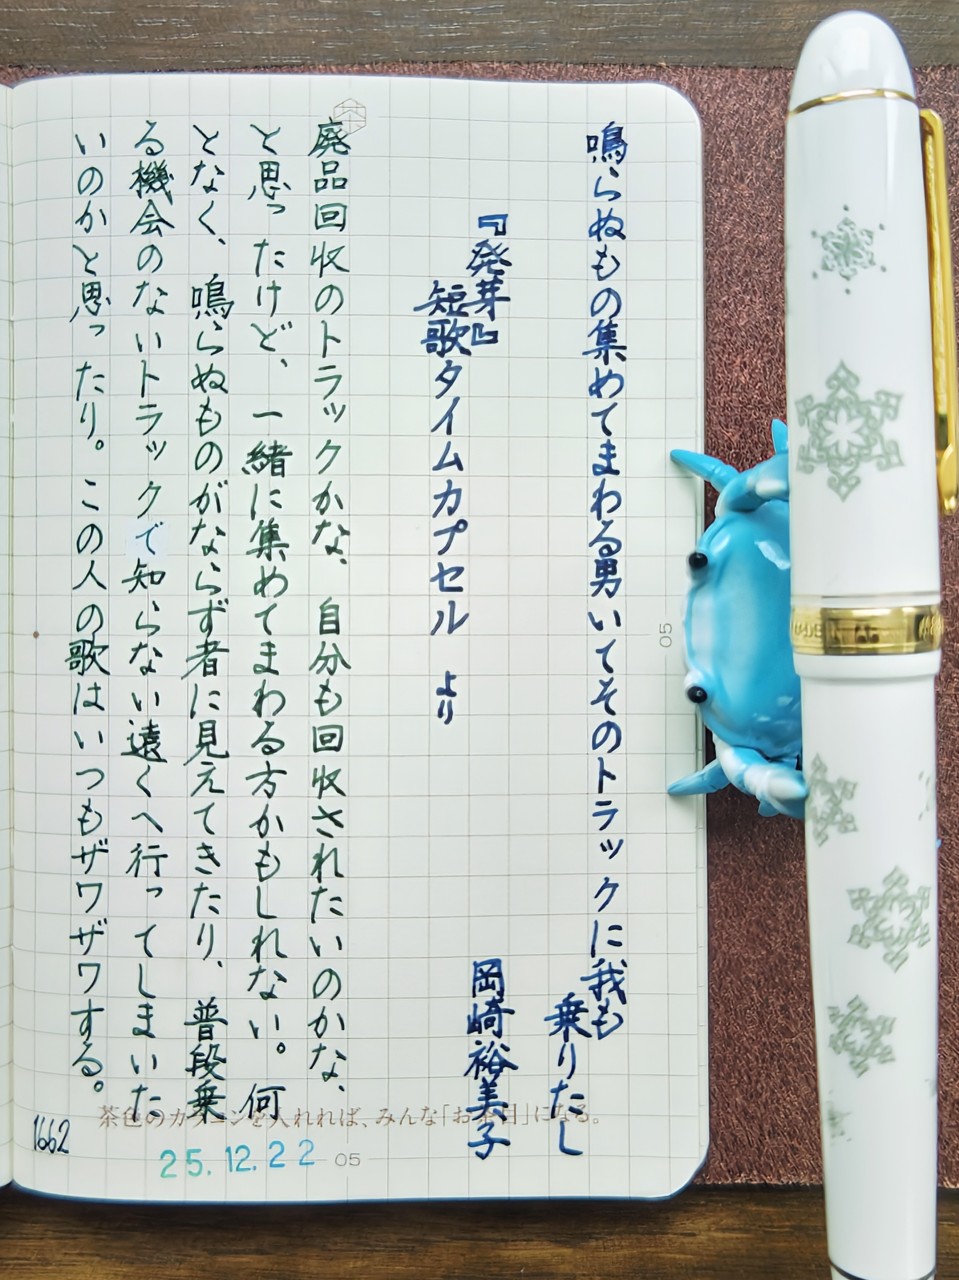 鳴らぬもの集めてまわる男いてそのトラックに我も
乗りたし
『発芽』
岡崎裕美子
短歌タイムカプセル　より
廃品回収のトラックかな、自分も回収されたいのかな、
と思ったけど、一緒に集めてまわる方かもしれない。何
となく、鳴らぬものがならず者に見えてきたり、普段乗
る機会のないトラックで知らない遠くへ行ってしまいた
いのかと思ったり。この人の歌はいつもザワザワする。
05
茶色のカ を入れれば、みんな「お 」になる。
1662
25.12.22
05